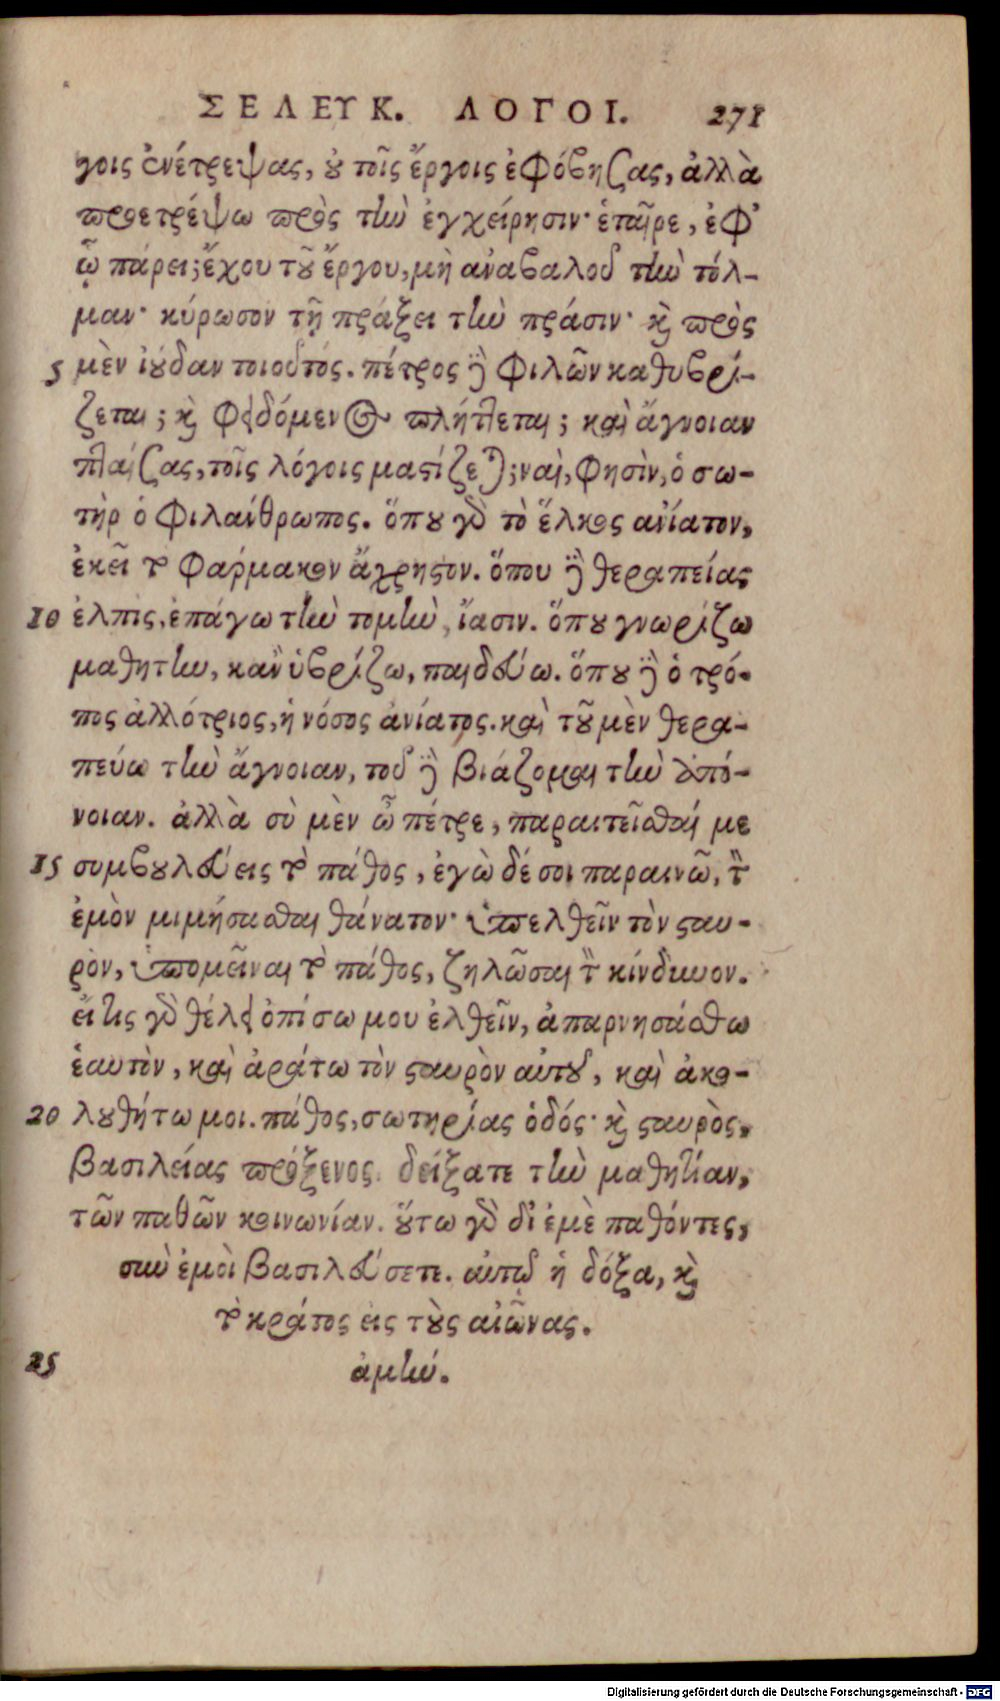 ΣΕΛΕΥΚ. ΛΟΓΟΙ. 271
γοις ἐνέτρεψας, οὐ τοῖς ἔργοις ἐφόβησας, ἀλλὰ
προετρέψω πρὸς τὴν ἐγχείρησιν· ἑταῖρε, ἐφ’
ᾧ πάρει; ἔχου τοῦ ἔργου, μὴ ἀναβαλοῦ τὴν τόλ-
μαν· κύρωσον τῇ πράξει τὴν πρᾶσιν· καὶ πρὸς
5 μὲν ἰούδαν τοιοῦτός. πέτρος δὲ φιλῶν καθυβρί-
ζεται; καὶ φειδόμενος πλήττεται; καὶ ἄγνοιαν
πταίσας, τοῖς λόγοις μαστίζεται; ναὶ, φησὶν, ὁ σω-
τὴρ ὁ φιλάνθρωπος. ὅπου γὰρ τὸ ἕλκος ἀνίατον,
ἐκεῖ τὸ φάρμακον ἄχρηστον. ὅπου δὲ θεραπείας
10 ἐλπὶς, ἐπάγω τὴν τομὴν, ἴασιν. ὅπου γνωρίζω
μαθητὴν, κἂν ὑβρίζω, παιδεύω. ὅπου δὲ ὁ τρό-
πος ἀλλότριος, ἡ νόσος ἀνίατος. καὶ τοῦ μὲν θερα-
πεύω τὴν ἄγνοιαν, τοῦ δὲ βιάζομαι τὴν ἀπό-
νοιαν. ἀλλὰ σὺ μὲν ὦ πέτρε, παραιτεῖσθαί με
15 συμβουλεύεις τὸ πάθος, ἐγὼ δέ σοι παραινῶ, τὸν
ἐμὸν μιμήσασθαι θάνατον· ὑπελθεῖν τὸν σταυ-
ρὸν, ὑπομεῖναι τὸ πάθος, ζηλῶσαι τὸν κίνδυνον.
εἴ τις γὰρ θέλει ὀπίσω μου ἐλθεῖν, ἀπαρνησάσθω
ἑαυτὸν, καὶ ἀράτω τὸν σταυρὸν αὐτοῦ, καὶ ἀκο-
20 λουθήτω μοι. πάθος, σωτηρίας ὁδός· καὶ σταυρὸς,
βασιλείας πρόξενος. δείξατε τὴν μαθητίαν,
τῶν παθῶν κοινωνίαν. οὕτω γὰρ δι’ ἐμὲ παθόντες,
σὺν ἐμοὶ βασιλεύσετε. αὐτῷ ἡ δόξα, καὶ
τὸ κράτος εἰς τοὺς αἰῶνας.
25 ἀμήν.
Digitalisierung gefördert durch die Deutsche Forschungsgemeinschaft - DFG